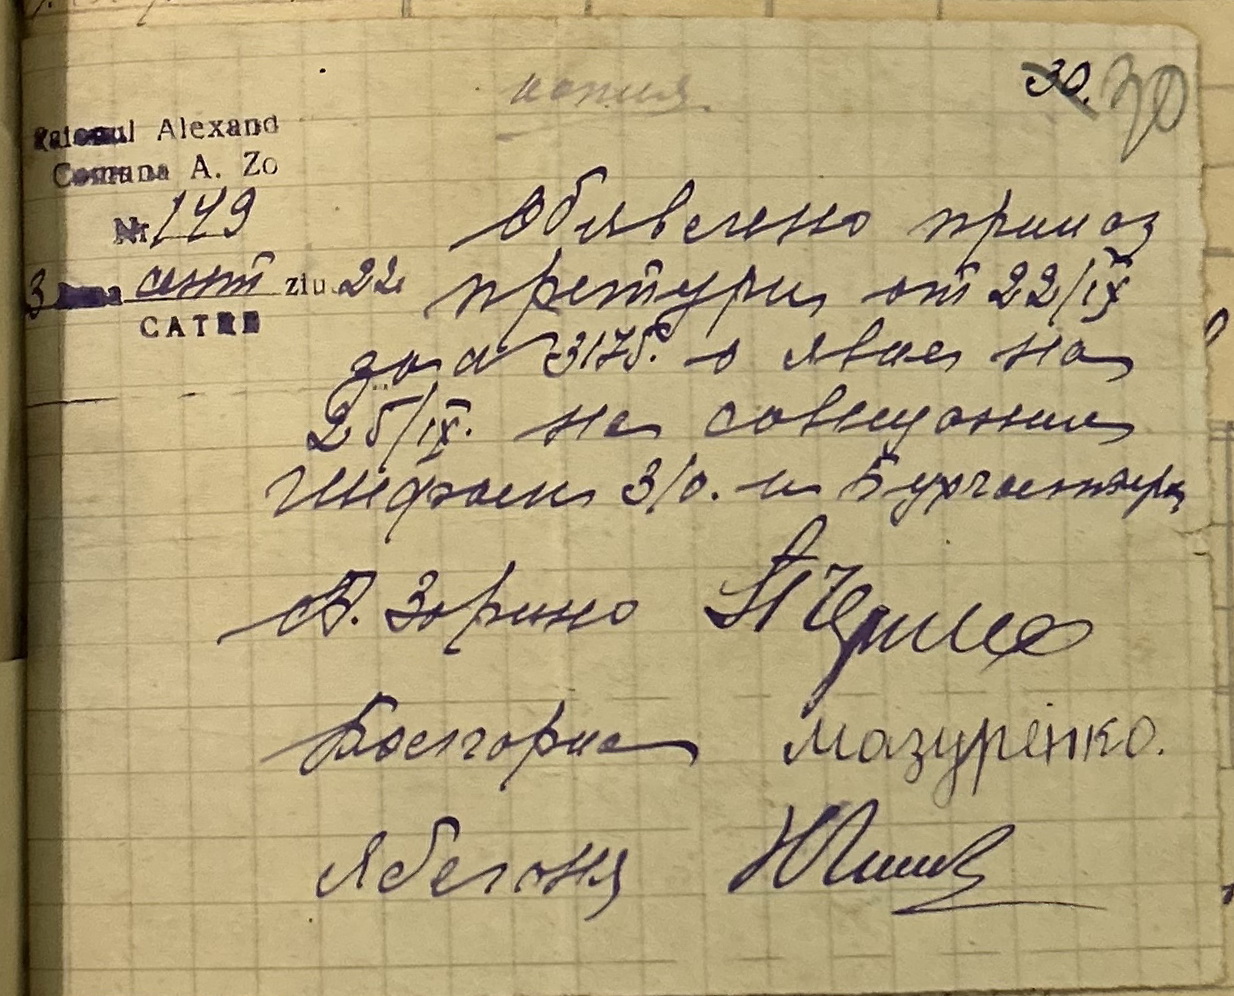 копия
30. 30
Raionul Alexand
Comuna A. Zo
Nr 149
3 Luna сент ziu 22
CATRE
Обявлено приказ
претури от 22/IX
за № 3175. о явке на
25/IX. на совещание
Шефам З/О. и Бухгалтера
А. Зорино
Болгарка Мазуренко.
Яблоня